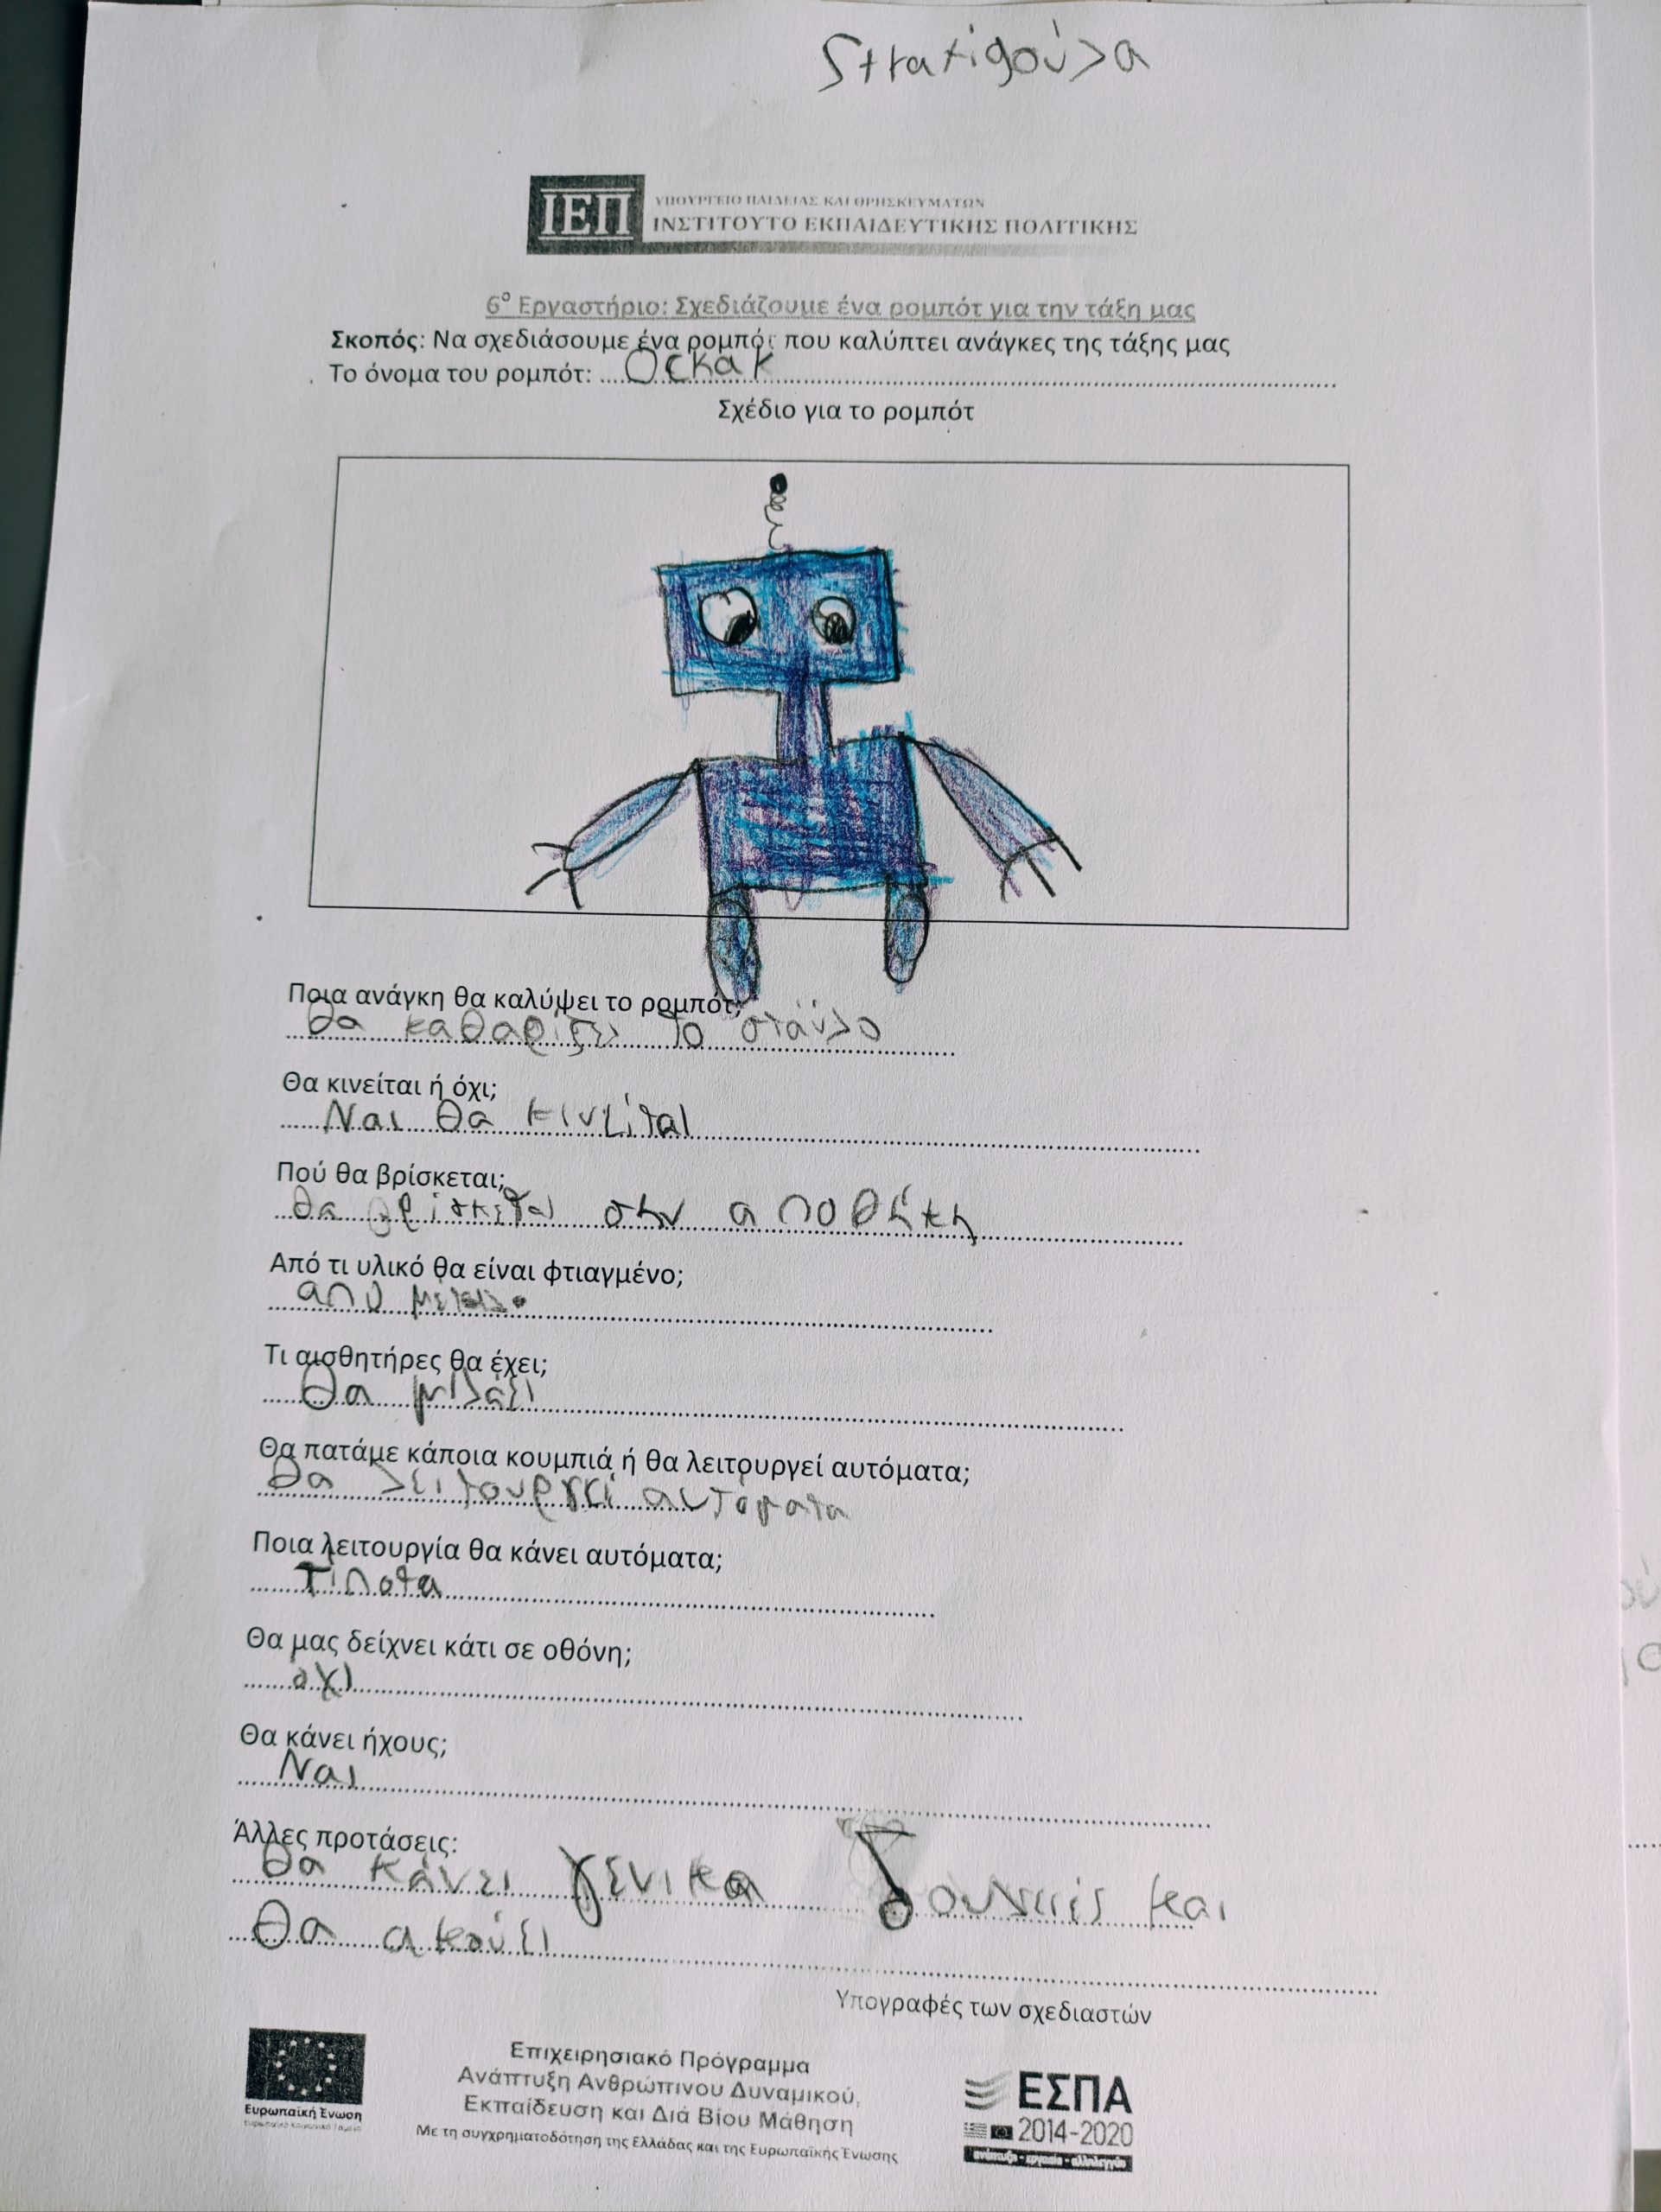 Stratigούλα
ΙΕΠ
ΥΠΟΥΡΓΕΙΟ ΠΑΙΔΕΙΑΣ ΚΑΙ ΘΡΗΣΚΕΥΜΑΤΩΝ
ΙΝΣΤΙΤΟΥΤΟ ΕΚΠΑΙΔΕΥΤΙΚΗΣ ΠΟΛΙΤΙΚΗΣ
6° Εργαστήριο: Σχεδιάζουμε ένα ρομπότ για την τάξη μας
Σκοπός: Να σχεδιάσουμε ένα ρομπότ που καλύπτει ανάγκες της τάξης μας
Το όνομα του ρομπότ:
Σχέδιο για το ρομπότ
Ποια ανάγκη θα καλύψει το ρομπότ;
θα καθαρίζει το στάυλο
Θα κινείται ή όχι;
Ναι θα κινείται
Πού θα βρίσκεται;
θα βρίσκεται στην αποθήκη
Από τι υλικό θα είναι φτιαγμένο;
από
Τι αισθητήρες θα έχει;
θα μιλάει
Θα πατάμε κάποια κουμπιά ή θα λειτουργεί αυτόματα;
θα λειτουργεί αυτοματα
Ποια λειτουργία θα κάνει αυτόματα;
Τίποτα
Θα μας δείχνει κάτι σε οθόνη;
οχι
Θα κάνει ήχους;
Ναι
Άλλες προτάσεις:
θα κάνει γενικα δουλειές και
θα ακούει
Υπογραφές των σχεδιαστών
Ευρωπαϊκή Ένωση
Ευρωπαϊκό Κοινωνικό Ταμείο
Επιχειρησιακό Πρόγραμμα
Ανάπτυξη Ανθρώπινου Δυναμικού,
Εκπαίδευση και Διά Βίου Μάθηση
Με τη συγχρηματοδότηση της Ελλάδας και της Ευρωπαϊκής Ένωσης
ΕΣΠΑ
2014-2020
ανάπτυξη - εργασία - αλληλεγγύη